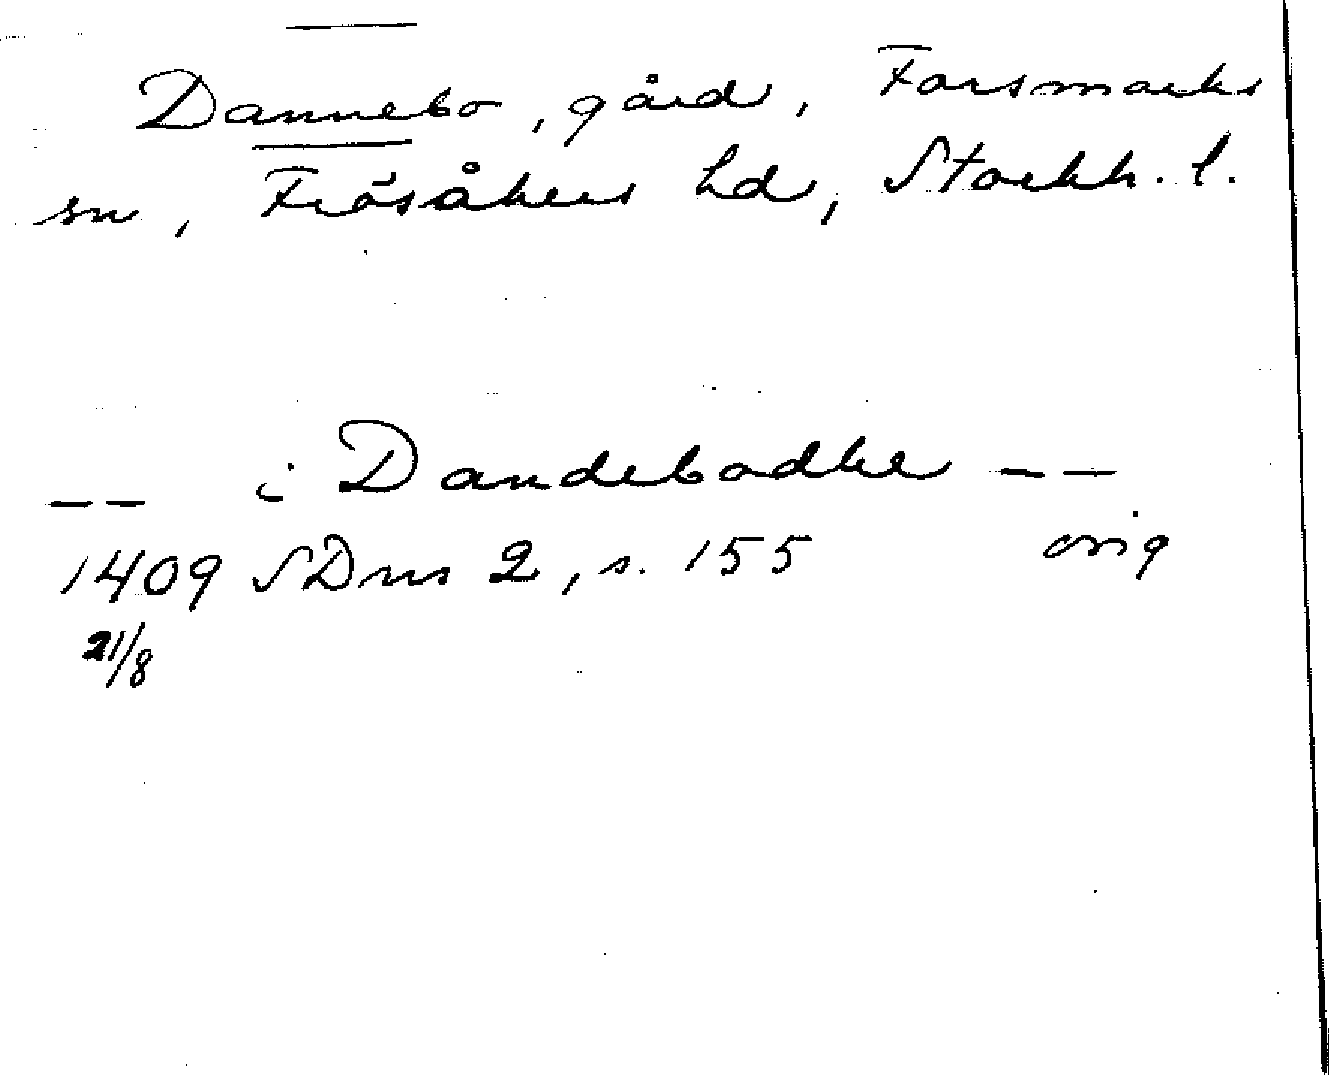 Dannebo, gård, Forsmarks
sn, Frösåkers hd, Stockh. l.
-- i Dandebodhe --
1409 SDns 2, s. 155 orig
21/8